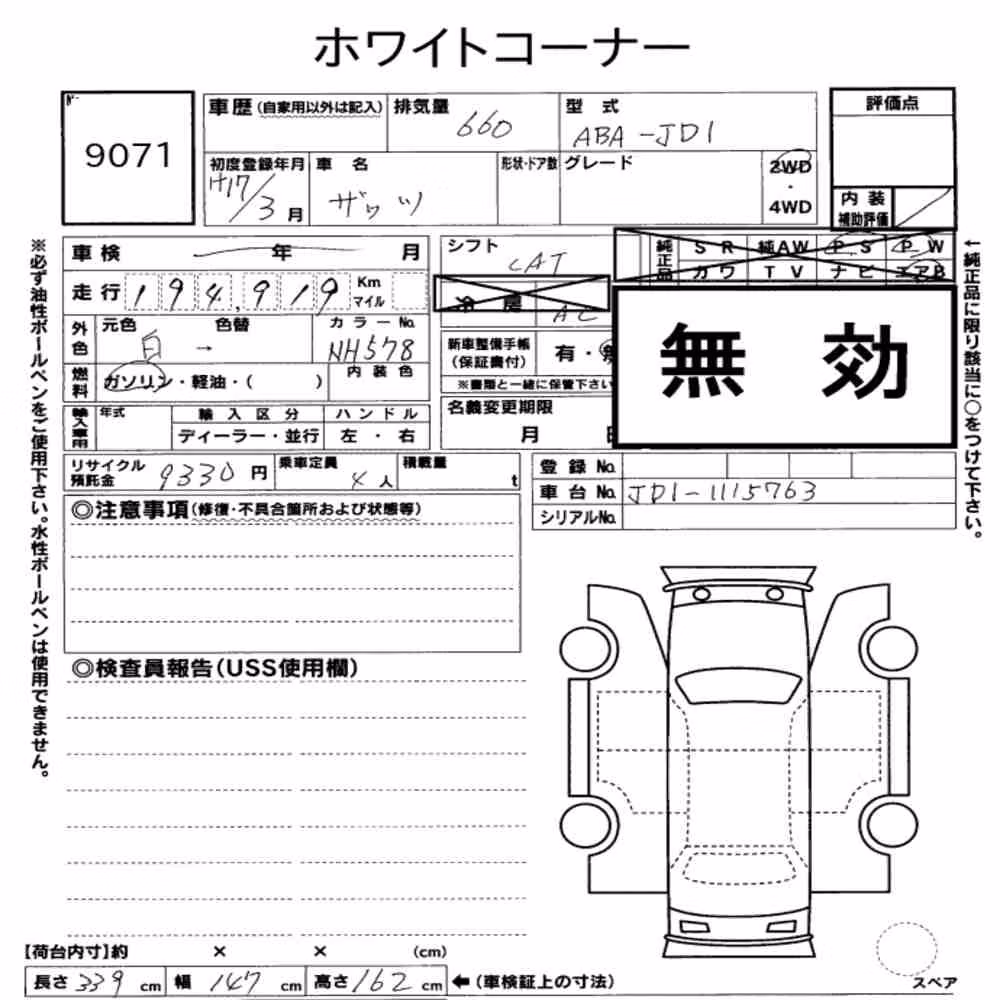 ホワイトコーナー
9071
車歴(自家用以外は記入)
排気量 660
型式 ABA-JD1
評価点
初度登録年月 H17/3月
車名 ザッツ
形状・ドア数
グレード
2WD
・
4WD
内装
補助評価
車検 年 月
シフト CAT
純正品
SR 純AW PS PW
カワ TV ナビ エアB
走行 194,919 Km
マイル
冷房 AC
無効
外色
元色 白 → 色替
カラーNo. NH578
新車整備手帳
(保証書付) 有・
燃料 ガソリン・軽油・( )
内装色
※書類と一緒に保管下さい
輸入車用
年式
輸入区分
ハンドル
ディーラー・並行
左・右
名義変更期限
月
リサイクル
預託金 9330円
乗車定員 4人
積載量 t
登録No.
車台No. JD1-1115763
シリアルNo.
◎注意事項(修復・不具合箇所および状態等)
◎検査員報告(USS使用欄)
※必ず油性ボールペンをご使用下さい。水性ボールペンは使用できません。
←純正品に限り該当に○をつけて下さい。
【荷台内寸】約 × × (cm)
長さ 339 cm 幅 147 cm 高さ 162 cm ←(車検証上の寸法)
スペア